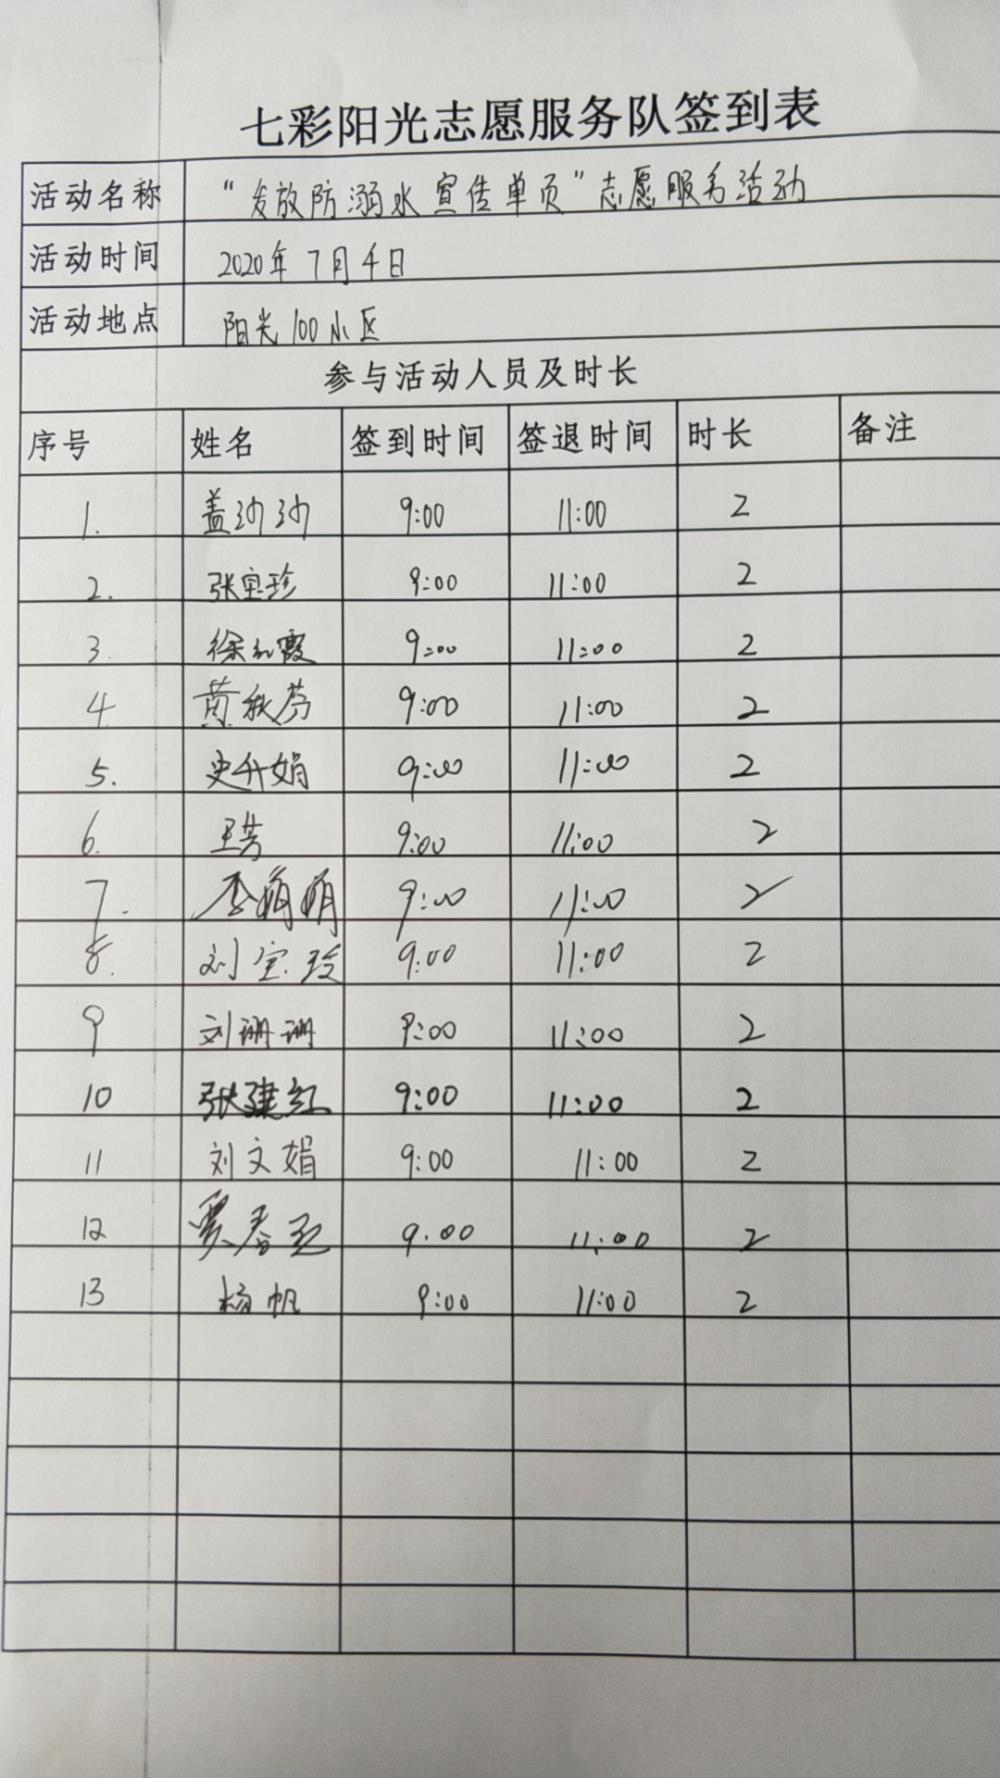 七彩阳光志愿服务队签到表
活动名称 “发放防溺水宣传单页”志愿服务活动
活动时间 2020年7月4日
活动地点 阳光100小区
参与活动人员及时长
序号 姓名 签到时间 签退时间 时长 备注
1. 盖沙沙 9:00 11:00 2
2. 张宝珍 9:00 11:00 2
3. 徐红霞 9:00 11:00 2
4. 黄秋芬 9:00 11:00 2
5. 史升娟 9:00 11:00 2
6. 王芳 9:00 11:00 2
7. 李娟娟 9:00 11:00 2
8. 刘宝玲 9:00 11:00 2
9 刘珊珊 9:00 11:00 2
10 张建红 9:00 11:00 2
11 刘文娟 9:00 11:00 2
12 贾春 9.00 11:00 2
13 杨帆 9:00 11:00 2